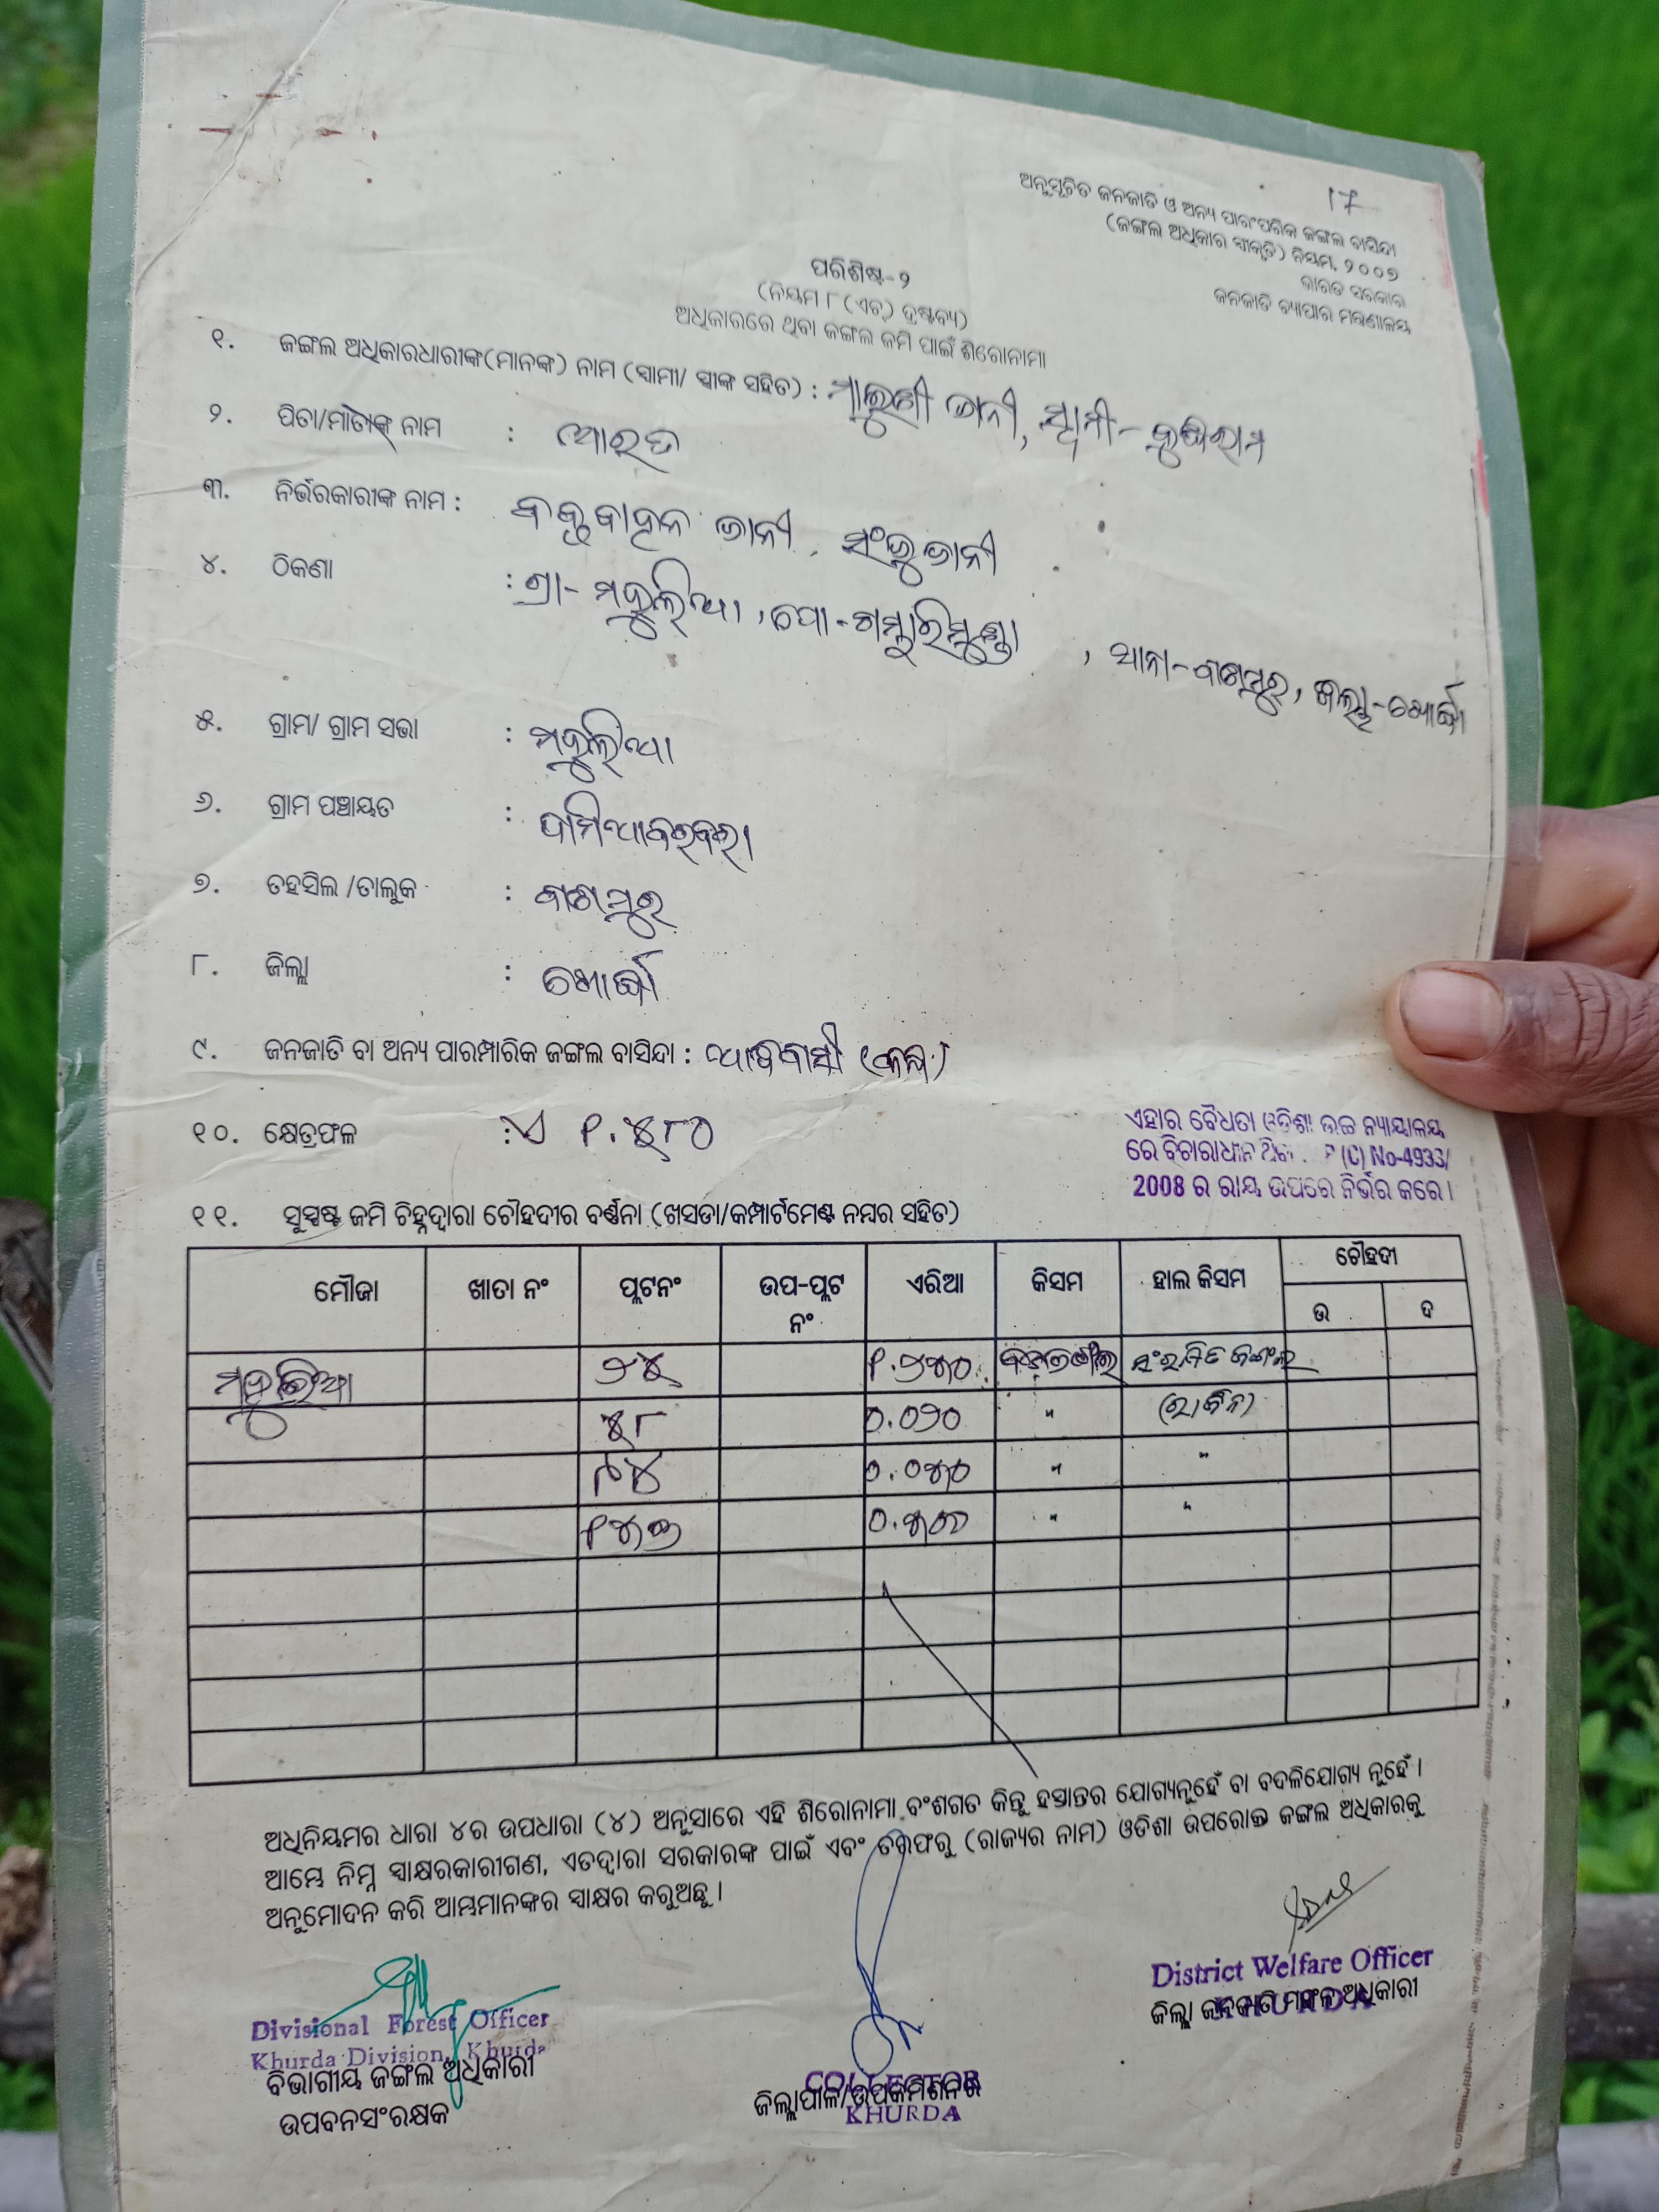 17
ଅନୁସୂଚିତ ଜନଜାତି ଓ ଅନ୍ୟ ପାରଂପରିକ ଜଙ୍ଗଲ ବାସିନ୍ଦା
(ଜଙ୍ଗଲ ଅଧିକାର ସ୍ୱୀକୃତି) ନିୟମ, ୨୦୦୭
ଭାରତ ସରକାର
ଜନଜାତି ବ୍ୟାପାର ମନ୍ତ୍ରଣାଳୟ
ପରିଶିଷ୍ଟ-୨
(ନିୟମ ୮ (ଏଚ୍) ଦ୍ରଷ୍ଟବ୍ୟ)
ଅଧିକାରରେ ଥିବା ଜଙ୍ଗଲ ଜମି ପାଇଁ ଶିରୋନାମା
୧. ଜଙ୍ଗଲ ଅଧିକାରଧାରୀଙ୍କ(ମାନଙ୍କ) ନାମ (ସ୍ୱାମୀ/ ସ୍ତ୍ରୀଙ୍କ ସହିତ) : ଜାନୀ, ସ୍ୱାମୀ-
୨. ପିତା/ମାତାଙ୍କ ନାମ : ଆରତ
୩. ନିର୍ଭରକାରୀଙ୍କ ନାମ : ଜାନୀ, ଜାନୀ
୪. ଠିକଣା : ଗ୍ରା- ମହୁଲିଆ, ପୋ- , ଥାନା-ବାଣପୁର, ଜିଲ୍ଲା-ଖୋର୍ଦ୍ଧା
୫. ଗ୍ରାମ/ ଗ୍ରାମ ସଭା : ମହୁଲିଆ
୬. ଗ୍ରାମ ପଞ୍ଚାୟତ : ଦାମିଆବରବରା
୭. ତହସିଲ /ତାଲୁକ : ବାଣପୁର
୮. ଜିଲ୍ଲା : ଖୋର୍ଦ୍ଧା
୯. ଜନଜାତି ବା ଅନ୍ୟ ପାରମ୍ପାରିକ ଜଙ୍ଗଲ ବାସିନ୍ଦା : ଆଦିବାସୀ (କନ୍ଧ)
୧୦. କ୍ଷେତ୍ରଫଳ : ଏ ୧.୪୮୦
ଏହାର ବୈଧତା ଓଡିଶା ଉଚ୍ଚ ନ୍ୟାୟାଳୟ
ରେ ବିଚାରାଧୀନ ଥିବା P (C) No-4933/
2008 ର ରାୟ ଉପରେ ନିର୍ଭର କରେ ।
୧୧. ସୁସ୍ପଷ୍ଟ ଜମି ଚିହ୍ନଦ୍ୱାରା ଚୌହଦୀର ବର୍ଣ୍ଣନା (ଖସଡା/କମ୍ପାର୍ଟମେଣ୍ଟ ନମ୍ବର ସହିତ)
ମୌଜା ଖାତା ନଂ ପ୍ଲଟନଂ ଉପ-ପ୍ଲଟ ନଂ ଏରିଆ କିସମ ହାଲ କିସମ ଚୌହଦୀ
ଉ ଦ
ମହୁଲିଆ ୨୪ ସଂରକ୍ଷିତ ଜଙ୍ଗଲ
୪୮ ୦.୦୨୦ "
" "
" "
ଅଧିନିୟମର ଧାରା ୪ର ଉପଧାରା (୪) ଅନୁସାରେ ଏହି ଶିରୋନାମା ବଂଶଗତ କିନ୍ତୁ ହସ୍ତାନ୍ତର ଯୋଗ୍ୟନୁହେଁ ବା ବଦଳିଯୋଗ୍ୟ ନୁହେଁ ।
ଆମ୍ଭେ ନିମ୍ନ ସ୍ୱାକ୍ଷରକାରୀଗଣ, ଏତଦ୍ୱାରା ସରକାରଙ୍କ ପାଇଁ ଏବଂ ତରଫରୁ (ରାଜ୍ୟର ନାମ) ଓଡିଶା ଉପରୋକ୍ତ ଜଙ୍ଗଲ ଅଧିକାରକୁ
ଅନୁମୋଦନ କରି ଆମ୍ଭମାନଙ୍କର ସ୍ୱାକ୍ଷର କରୁଅଛୁ ।
Divisional Forest Officer
Khurda Division, Khurda
ବିଭାଗୀୟ ଜଙ୍ଗଲ ଅଧିକାରୀ
ଉପବନସଂରକ୍ଷକ
COLLECTOR
ଜିଲ୍ଲାପାଳ/ଉପକମିଶନର
KHURDA
District Welfare Officer
KHURDA
ଜିଲ୍ଲା ଜନଜାତି ମଙ୍ଗଳ ଅଧିକାରୀ